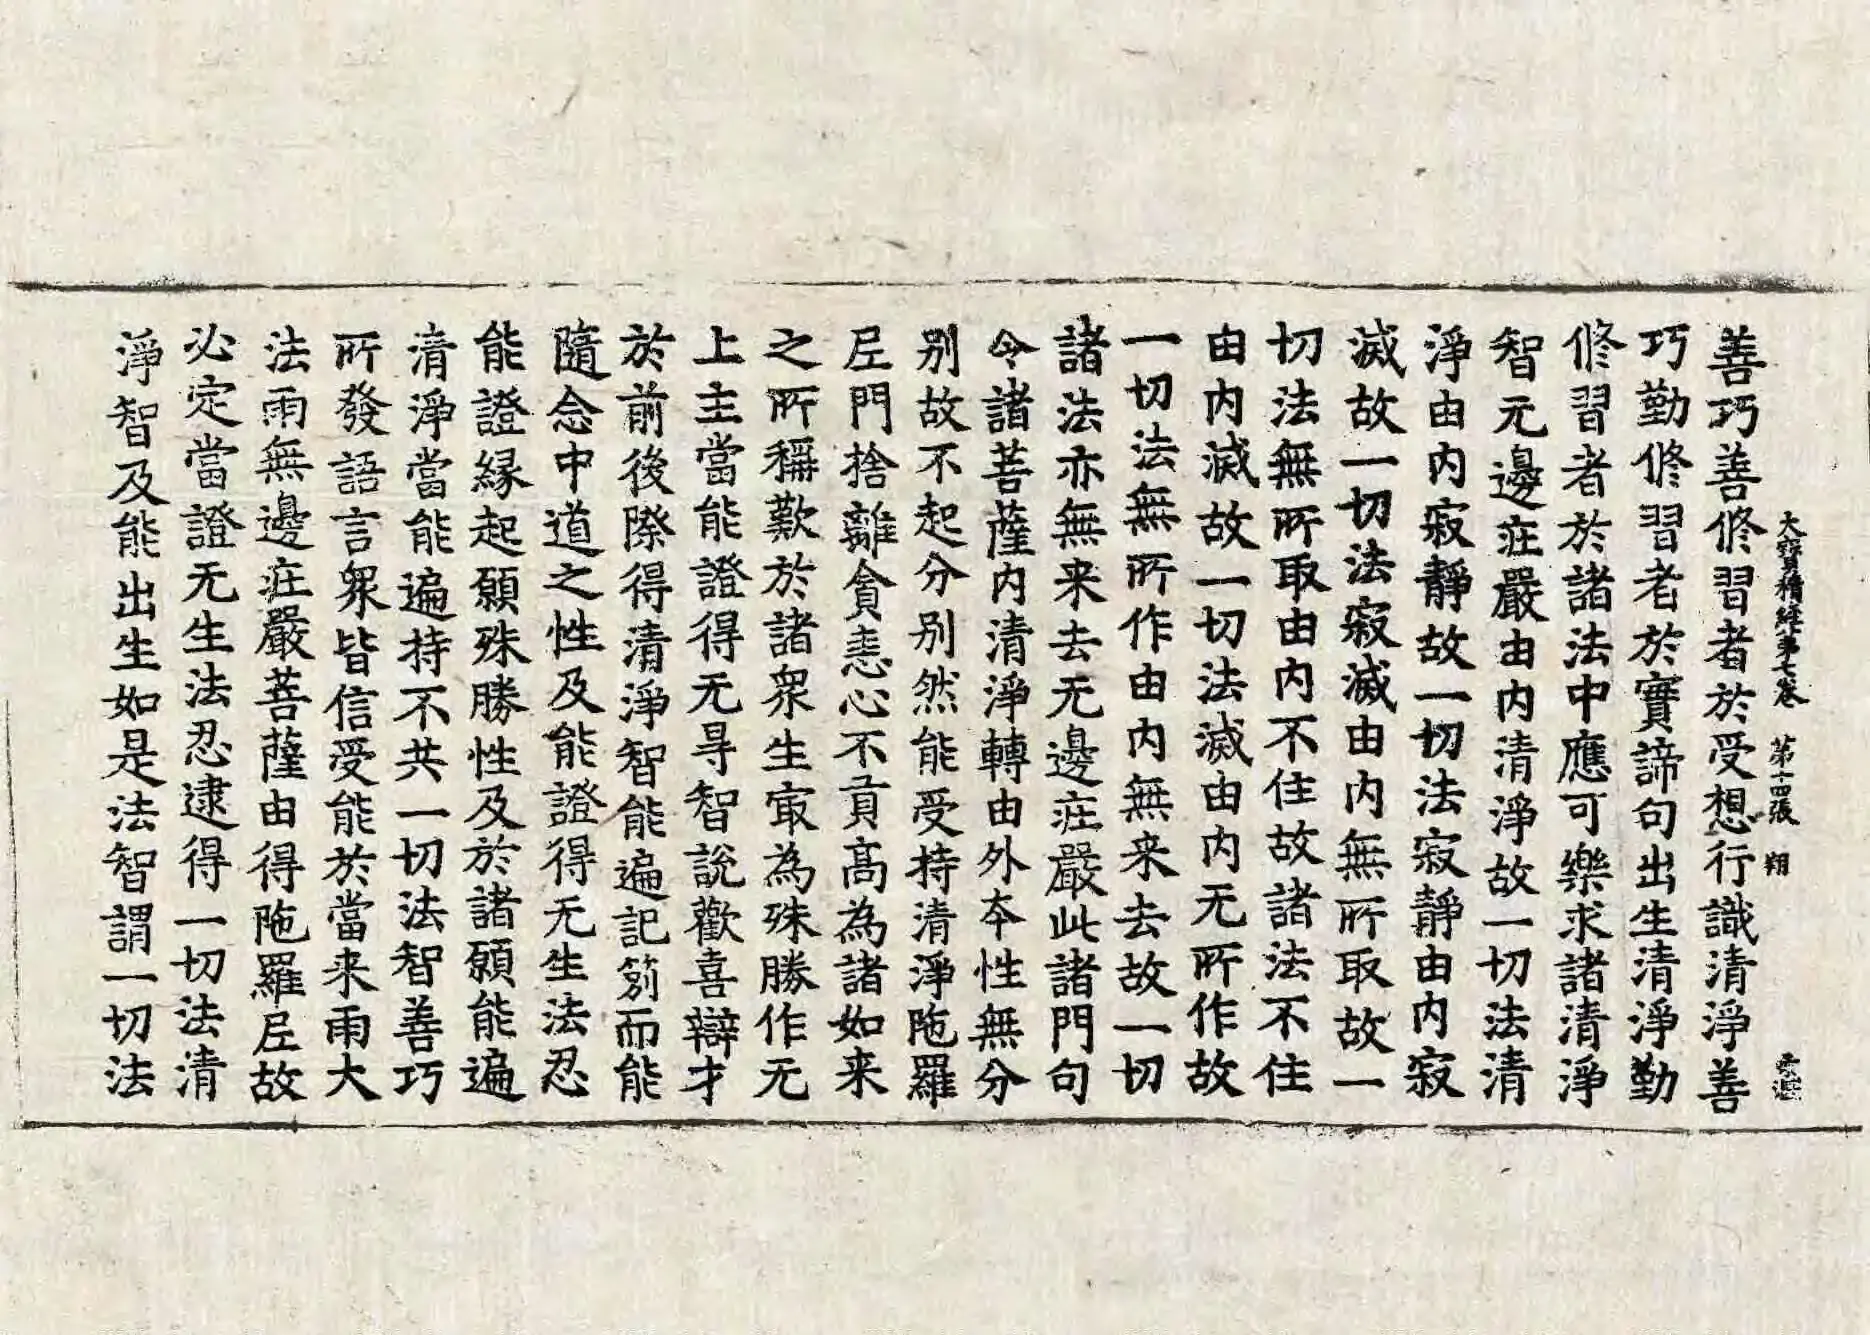 大寶積經第七卷 第十四張 翔
善巧善修習者於受想行識清淨善
巧勤修習者於實諦句出生清淨勤
修習者於諸法中應可樂求諸清淨
智无邊㽵嚴由內清淨故一切法清
淨由內寂靜故一切法寂靜由內寂
滅故一切法寂滅由內無所取故一
切法無所取由內不住故諸法不住
由內滅故一切法滅由內无所作故
一切法無所作由內無来去故一切
諸法亦無来去无邊㽵嚴此諸門句
令諸菩薩內清淨轉由外夲性無分
別故不起分別然能受持清淨陁羅
尼門捨離貪恚心不貢髙為諸如来
之所稱歎於諸衆生㝡為殊勝作无
上主當能證得无㝵智說歡喜辯才
於前後際得清淨智能遍記莂而能
隨念中道之性及能證得无生法忍
能證緣起願殊勝性及於諸願能遍
清淨當能遍持不共一切法智善巧
所發語言衆皆信受能於當来雨大
法雨無邊㽵嚴菩薩由得陁羅尼故
必定當證无生法忍逮得一切法清
淨智及能出生如是法智謂一切法